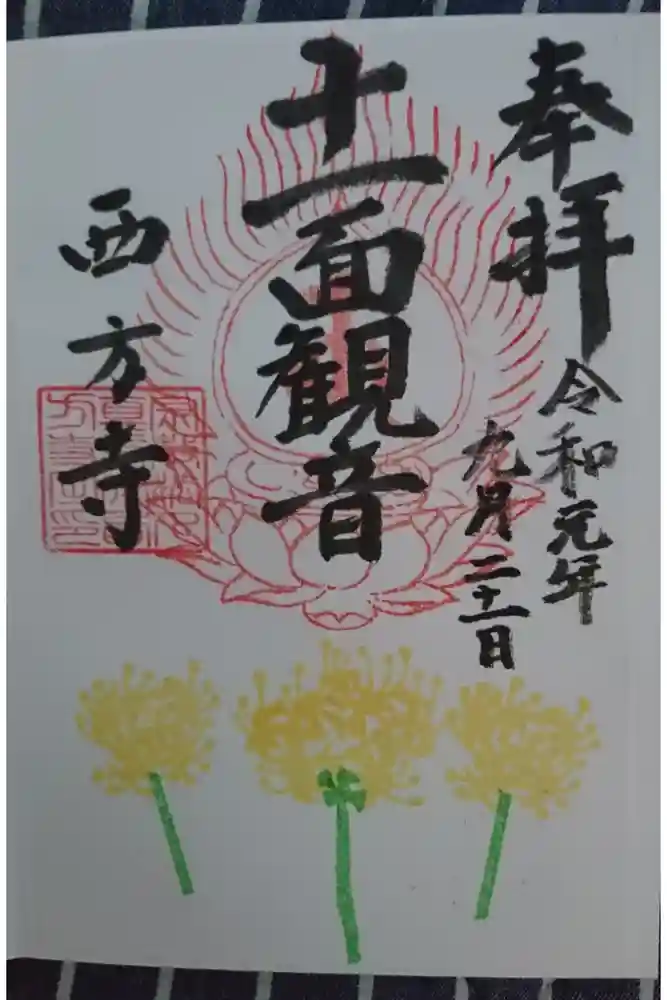 奉拝
令和元年
九月二十一日
十一面観音
西方寺